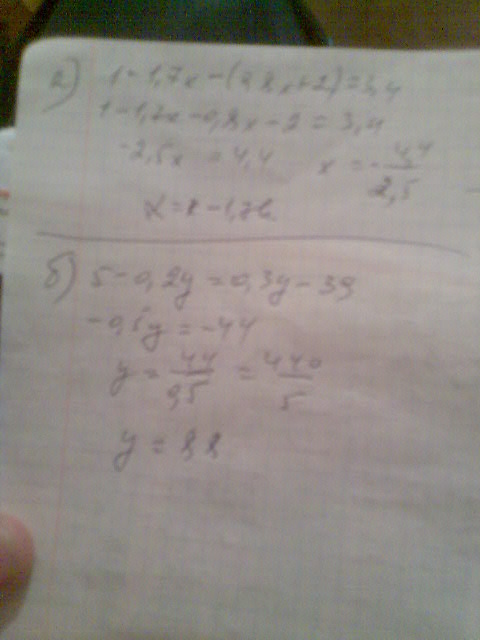 а) 1-1,7x-(0,8x+2)=3,4
1-1,7x-0,8x-2=3,4
-2,5x =4,4 x=-4,4/2,5
x=-1,76
б) 5-0,2y=0,3y-39
-0,5y=-44
y=44/0,5=440/5
y=88